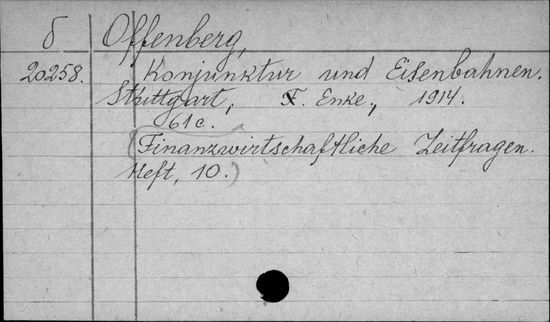 б Offenberg,
20258. Konjunktur und Eisenbahnen.
Stuttgart, F. Enke, 1914.
61 c.
(Finanzwirtschaftliche Zeitfragen.
Heft, 10.)